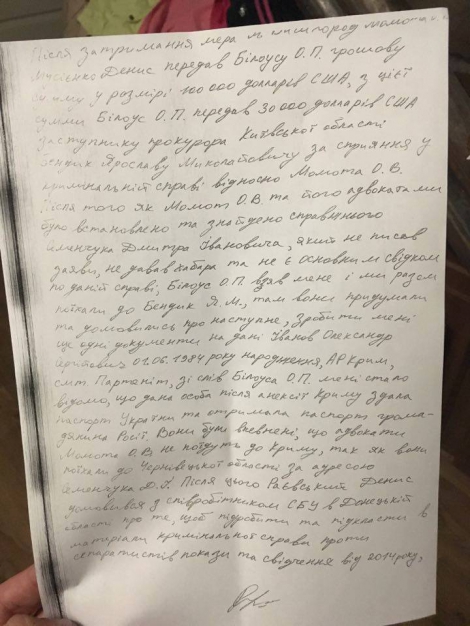 Після затримання мера м Вишгород Момота О.В
Мусієнко Денис передав Білоусу О.П. грошову
суму у розмірі 100 000 долларів США, з цієї
сумми Білоус О.П. передав 30 000 долларів США
заступнику прокурора Київської області
Бендик Ярославу Миколайовичу за сприяння у
кримінальній справі відносно Момота О.В.
Після того як Момот О.В та його адвокатами
було встановлено та знайдено справжнього
Семенчука Дмитра Івановича, який не писав
заяви, не давав хабара та не є основним свідком
по даній справі, Білоус О.П. взяв мене і ми разом
поїхали до Бендик Я.М., там вони придумали
та домовились про наступне, зробити мені
ще одні документи на дані Іванов Олександр
01.06.1984 року народження, АР Крим,
смт. Партеніт, зі слів Білоуса О.П. мені стало
відомо, що дана особа після анексії Криму здала
паспорт України та отримала паспорт грома-
дянина Росії. Вони були впевнені, що адвокати
Момота О.В не поїдуть до Криму, так як вони
поїхали до Чернівецької області за адресою
Семенчука Д.І. Після цього Раєвський Денис
домовився з співробітником СБУ в Донецькій
області про те, щоб підробити та підкласти в
матеріали кримінальної справи проти
сепаратистів покази та свідчення від 2014 року.